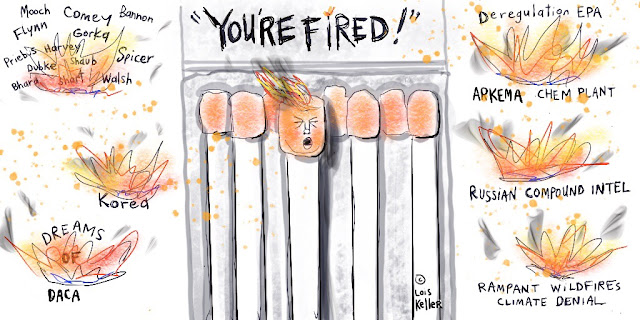 Mooch Comey Bannon
Flynn Gorka
Priebjs Harvey Spicer
Dubke Shaub
Bhara short Walsh
Korea
DREAMS
OF
DACA
"YOU'RE FIRED!"
© Lois
Keller
Deregulation EPA
APKEMA CHEM PLANT
RUSSIAN COMPOUND INTEL
RAMPANT WILDFIRE'S
CLIMATE DENIAL